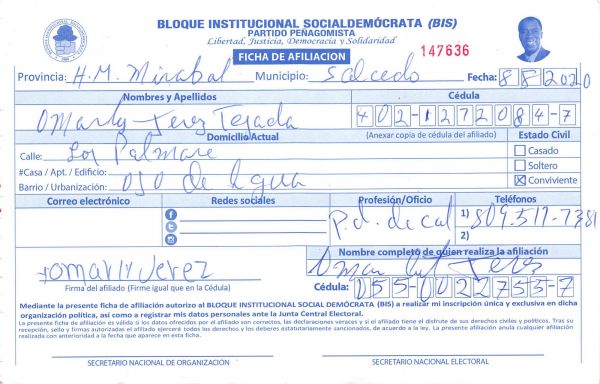 BLOQUE INSTITUCIONAL SOCIALDEMÓCRATA (BIS)
PARTIDO PEÑAGOMISTA
Libertad, Justicia, Democracia y Solidaridad
FICHA DE AFILIACION
147636
Provincia: H.M. Mirabal Municipio: Salcedo Fecha: 8 8 2020
Nombres y Apellidos Cédula
Omarly Jerez Tejada 402-1272084-7
Domicilio Actual (Anexar copia de cédula del afiliado) Estado Civil
Calle: Los Palmare Casado
#Casa / Apt. / Edificio: Soltero
Barrio / Urbanización: Ojo de Agua X Conviviente
Correo electrónico Redes sociales Profesión/Oficio Teléfonos
P.d. de cal 1) 809.517-7381
2)
Nombre completo de quien realiza la afiliación
Jerez
Firma del afiliado (Firme igual que en la Cédula) Cédula: 055-0022753-7
Mediante la presente ficha de afiliación autorizo al BLOQUE INSTITUCIONAL SOCIAL DEMÓCRATA (BIS) a realizar mi inscripción única y exclusiva en dicha
organización política, así como a registrar mis datos personales ante la Junta Central Electoral.
La presente ficha de afiliación es válida si los datos ofrecidos por el afiliado son correctos, las declaraciones veraces y si el afiliado tiene el disfrute de sus derechos civiles y políticos. Tras su
recepción, sello y firmas autorizadas el afiliado ejercerá todos los derechos y los deberes estatutariamente sancionados, de acuerdo a la ley. La presente afiliación anula cualquier afiliación
realizada con anterioridad a la fecha que aparece en esta ficha.
SECRETARIO NACIONAL DE ORGANIZACIÓN SECRETARIO NACIONAL ELECTORAL